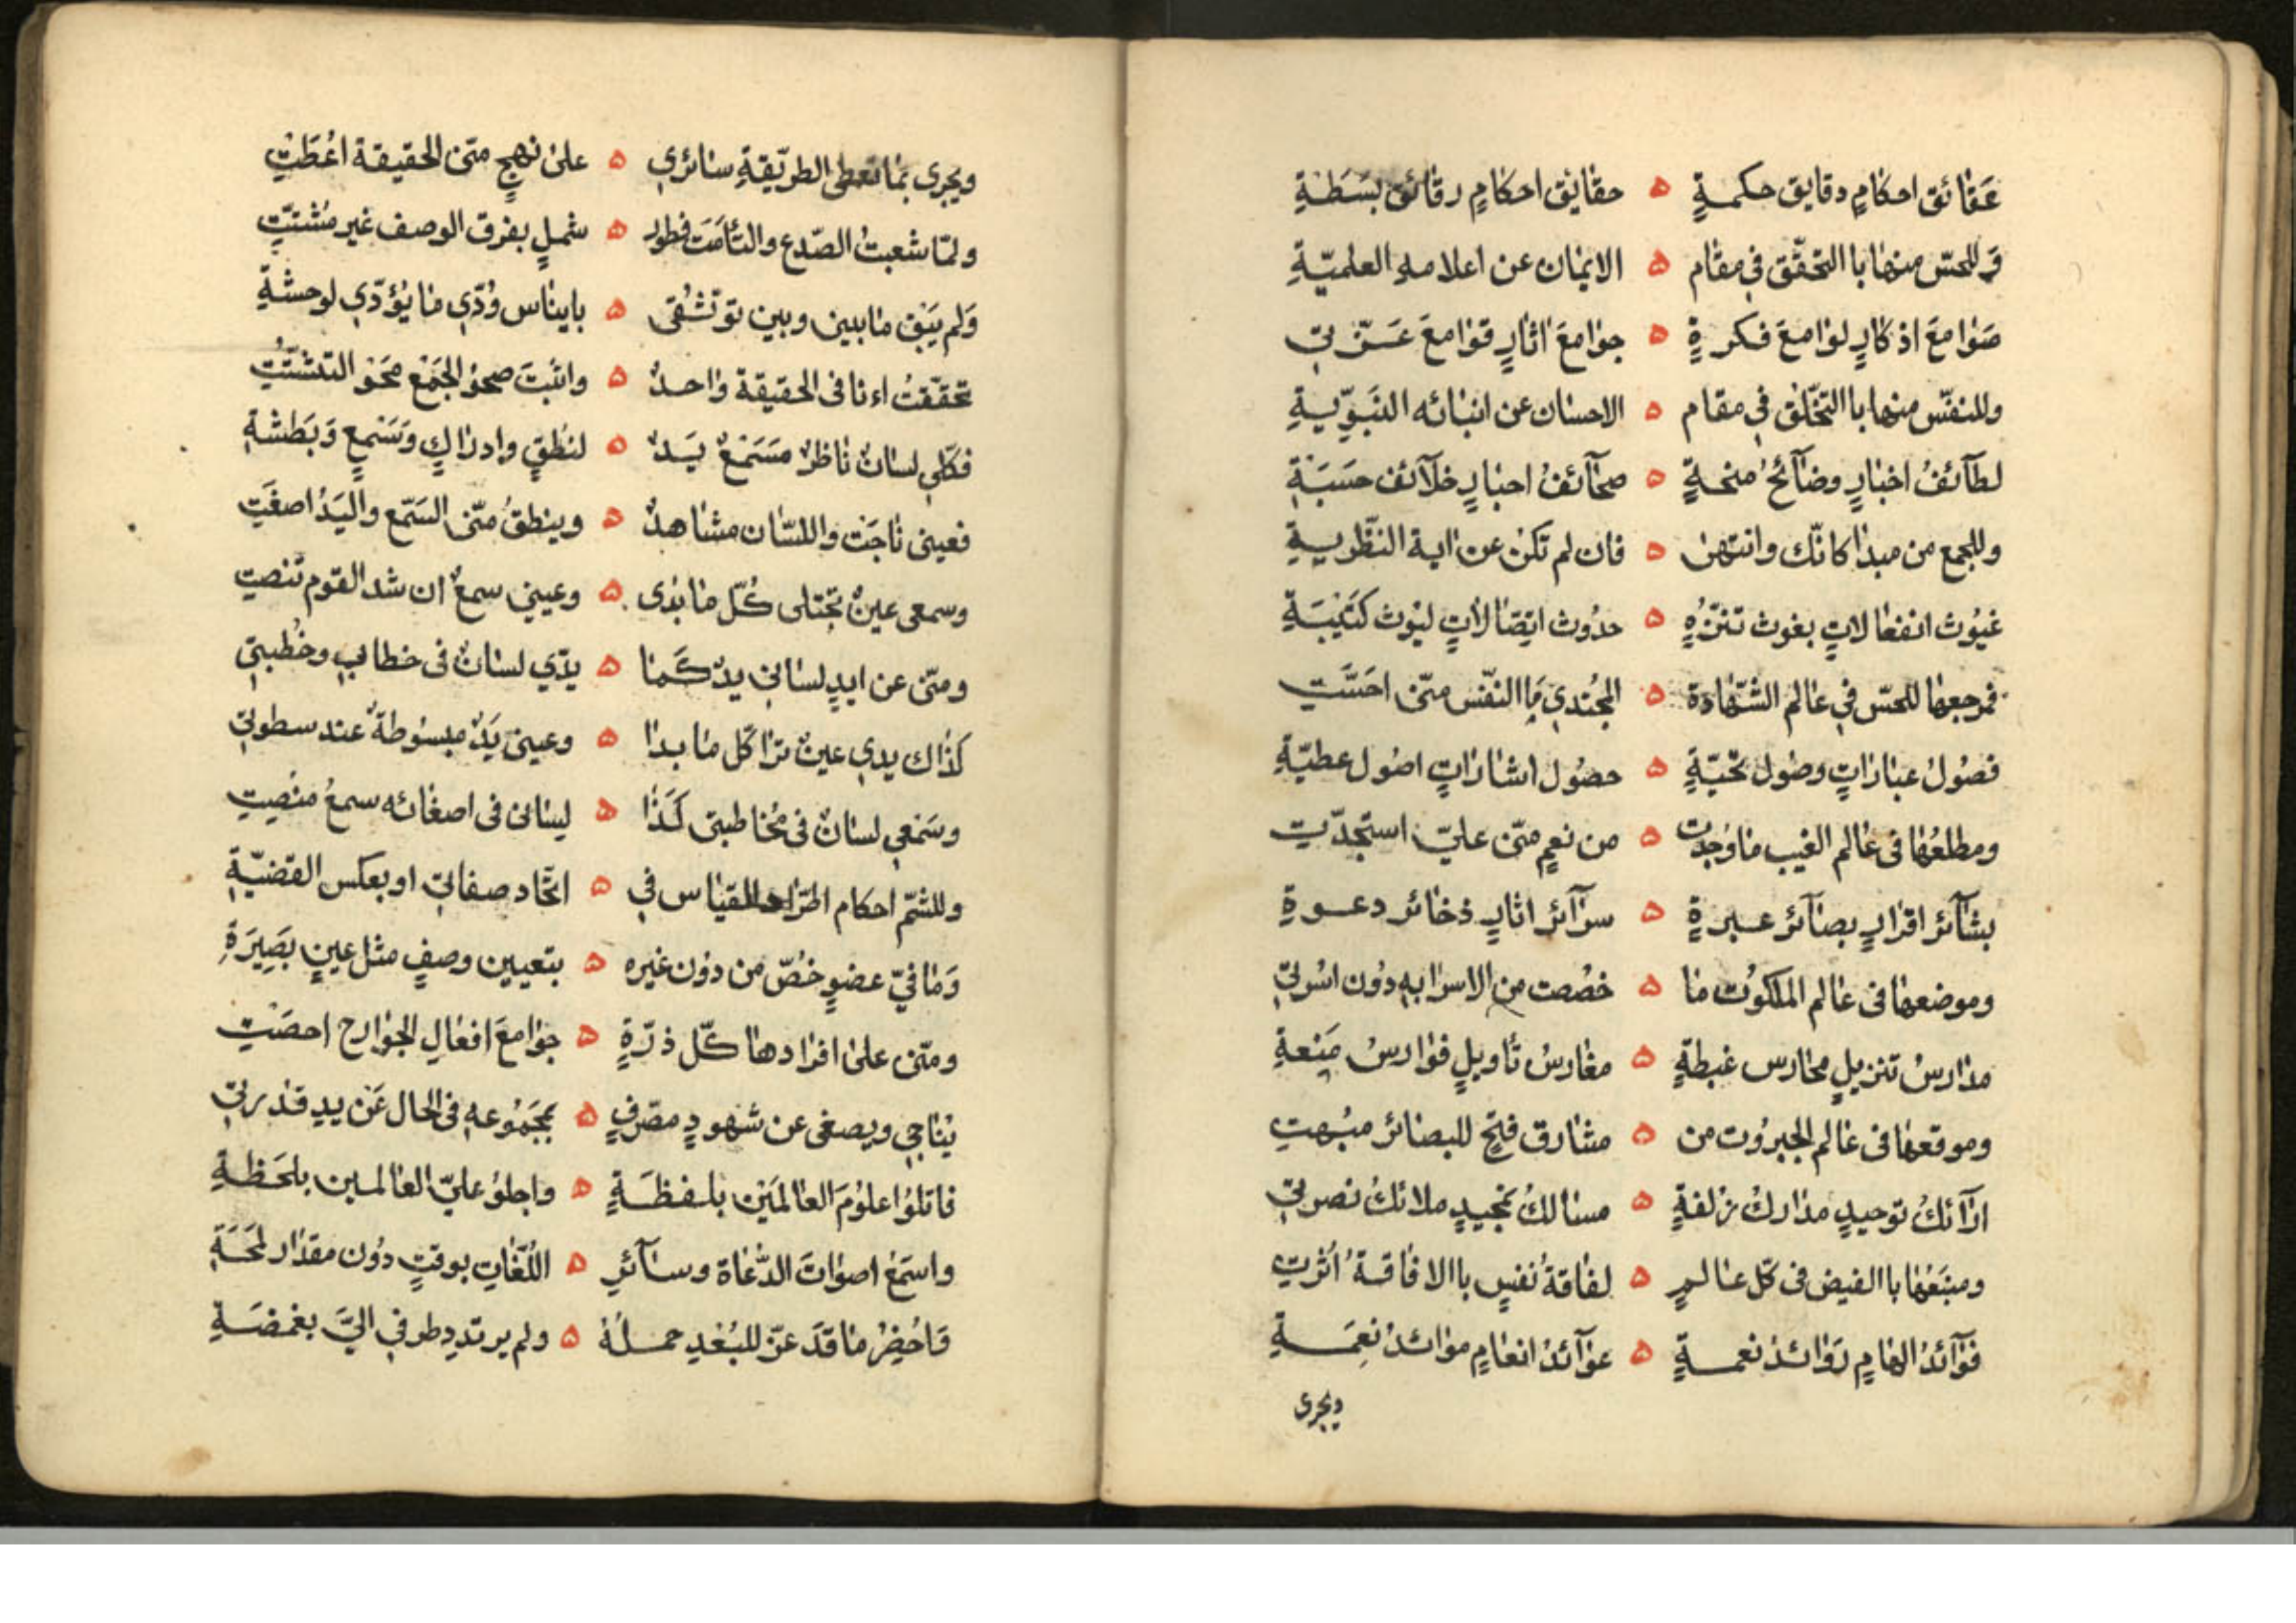 عَقائق احكامٍ دقايق حكمةٍ ه حقايق احكامٍ رقائق بسَطَةٍ
وَللحسّ منها باالتحقّق في مقام ه الايمان عن اعلامه العلميّةِ
صَوامعَ اذكارٍ لوامعَ فكرةٍ ه جوامعَ اثارٍ قوامعَ عَزّتي
وللنفس منها باالتخلّق في مقام ه الاحسان عن انبائه النبَوِّيةِ
لطآئفُ اخبارٍ وضآئحُ منحةٍ ه صحآئفُ احبارٍ خلآئف حسَبَةٍ
وللجمع من مبدا كانّك وانتهى ه فان لم تكن عن اية النظّريةِ
غيُوث انفعالاتٍ بغوث تنزّهٍ ه حدُوث ايصالاتٍ ليوث كتَيبَةٍ
فمرجعها للحسّ في عالم الشّهادة ه المجُندي ما النفس منّى احسَّتِ
فصُول عباراتٍ وصُول تحيّةٍ ه حصُول اشاراتٍ اصُول عطيّةِ
ومطلعُها فى عالم الغيب ما وُجدت ه من نعمٍ منّى عليّ استجدّتِ
بشآئرُ اقرارٍ بصآئرُ عبرةٍ ه سرآئرُ اثارٍ ذخائر دعوةٍ
وموضعها فى عالم الملكوُت ما ه خصُصت من الاسرا به دُون اسُرتي
مدارسُ تنزيلٍ محارس غبطةٍ ه مغارسُ تأويلٍ فوارسُ مَنِعةِ
وموقعها فى عالم الجبرُوت من ه مشارق فتحٍ للبصائر مبُهتِ
ارآئكُ توحيدٍ مداركُ زلفةٍ ه مسالكُ تمجيدٍ ملائكُ نصرتي
ومنبَعُها باالفيض فى كلّ عالمٍ ه لفاقةُ نفسٍ باالافاقةُ اثُرتِ
فوآئدُ الهامٍ رَوائدُ نعمةٍ ه عوآئدُ انعامٍ موائدُ نِعَمةِ
ويجرى
ويجرى بما تعطى الطرّيقةِ سائري ه على نهجٍ متى الحقيقة اعُطَتْ
ولمّا شعبتُ الصّدع والتأمَت فطور ه شملٍ بفرق الوصف غير مُشتتِّ
وَلم يَبَق مابين وبين توثّشُقى ه بايناس وُدّي ما يُؤدّي لوحشةِ
تحققّتُ اءنا فى الحقيقة واحدٌ ه واثبتَ صحوُ الجمَعْ محَوَ التشتّتُِ
فكلّي لسانٌ ناظرٌ مسَمَعٌ يَدٌ ه لنُطقٍ وادراكٍ وَسَمعٍ وَبَطشةِ
فعينى ناجَت واللسّان مشاهدٌ ه وينطقُ منّى السَمّع واليَدُ اصغَتِ
وسمعى عينٌ تجتلى كُلّ ما بدى ه وعيني سمعٌ ان شد القوم تنصتِ
ومنّى عن ايدٍ لساني يدٌ كَما ه يدّي لسانٌ فى خطابي وخُطبتي
كذاك يدي عينٌ ترا كُل ما بدا ه وعينى يَدٌ مبسُوطةٌ عند سطوتي
وسَمعي لسانٌ فى مخُاطبتى كَذا ه لسانى فى اصغائه سمعُ منصِتِ
وللشمّ احكام اطرّاد القيٰاس في ه اتّحاد صفاتي او بعكس القضيّةِ
وَما فيّ عضوٍ خصُّ من دوُن غيره ه بتعيين وصفٍ مثل عينٍ بصَيرَةِ
ومنّى على افرادها كُلّ ذرّةٍ ه جوامعَ افعالِ الجوارح احصَتِ
يناجي ويصغى عن شهودٍ مصّرفٍ ه بمجَمُوعهِ فى الحال عَن يدِ قدرتي
فاتلوُا علوُمَ العالمَيْن بلفظَةٍ ه واجلوُ عليّ العالمين بلحَظةِ
واسَمعْ اصواتَ الدُّعاة وسآئرِ ه اللّغَاتِ بوقتٍ دوُن مقدار لمَحَةِ
وَاحُضِرُ ما قدَ عزّ للبُعْدِ حملُهُ ه ولم يرتددِ طرفي اليَّ بغمضَةِ